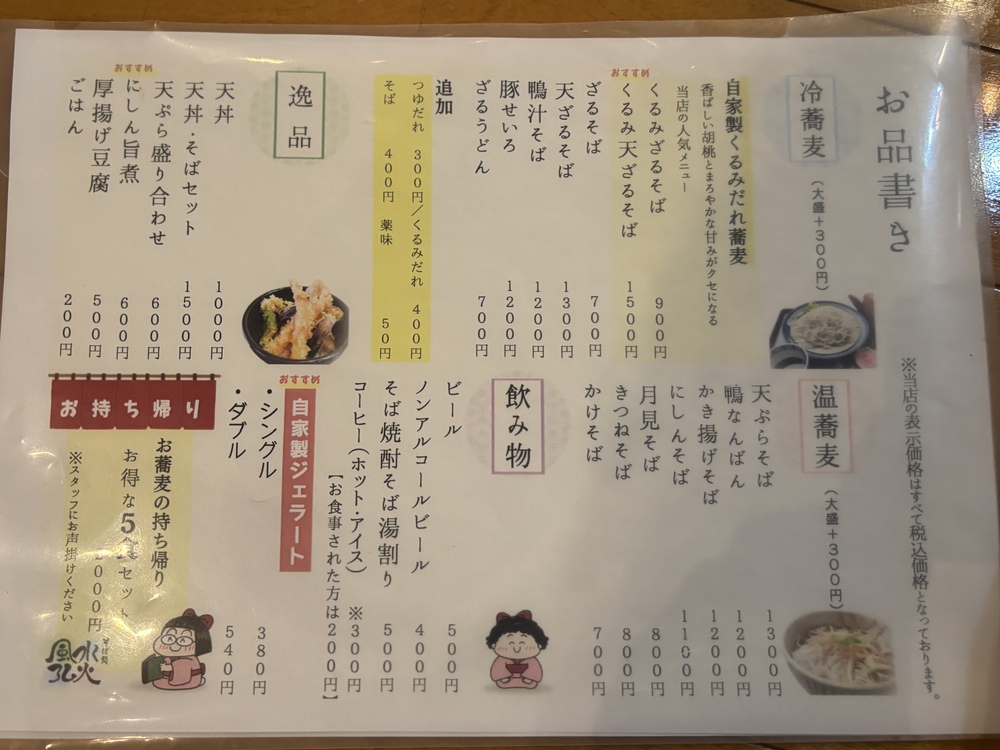 お品書き
※当店の表示価格はすべて税込価格となっております。
冷蕎麦
(大盛+300円)
自家製くるみだれ蕎麦
香ばしい胡桃とまろやかな甘みがクセになる
当店の人気メニュー
おすすめ
くるみざるそば 900円
くるみ天ざるそば 1500円
ざるそば 700円
天ざるそば 1300円
鴨汁そば 1200円
豚せいろ 1200円
ざるうどん 700円
追加
つゆだれ 300円/くるみだれ 400円
そば 400円 薬味 50円
逸品
天丼 1000円
天丼・そばセット 1500円
天ぷら盛り合わせ 600円
おすすめ
にしん旨煮 600円
厚揚げ豆腐 500円
ごはん 200円
温蕎麦
(大盛+300円)
天ぷらそば 1300円
鴨なんばん 1200円
かき揚げそば 1200円
にしんそば 1100円
月見そば 800円
きつねそば 800円
かけそば 700円
飲み物
ビール 500円
ノンアルコールビール 400円
そば焼酎そば湯割り 500円
コーヒー(ホット・アイス) ※300円
【お食事された方は200円】
おすすめ
自家製ジェラート
・シングル 380円
・ダブル 540円
お持ち帰り
お蕎麦の持ち帰り
お得な5食セット 2000円
※スタッフにお声掛けください